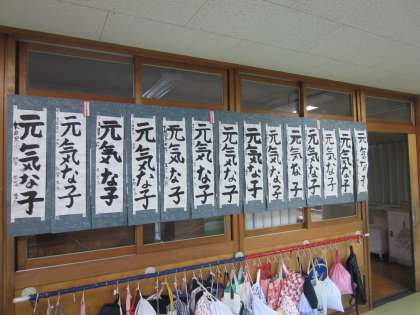 元気な子
元気な子
元気な子
元気な子
元気な子
元気な子
元気な子
元気な子
元気な子
元気な子
元気な子
元気な子
元気な子
元気な子